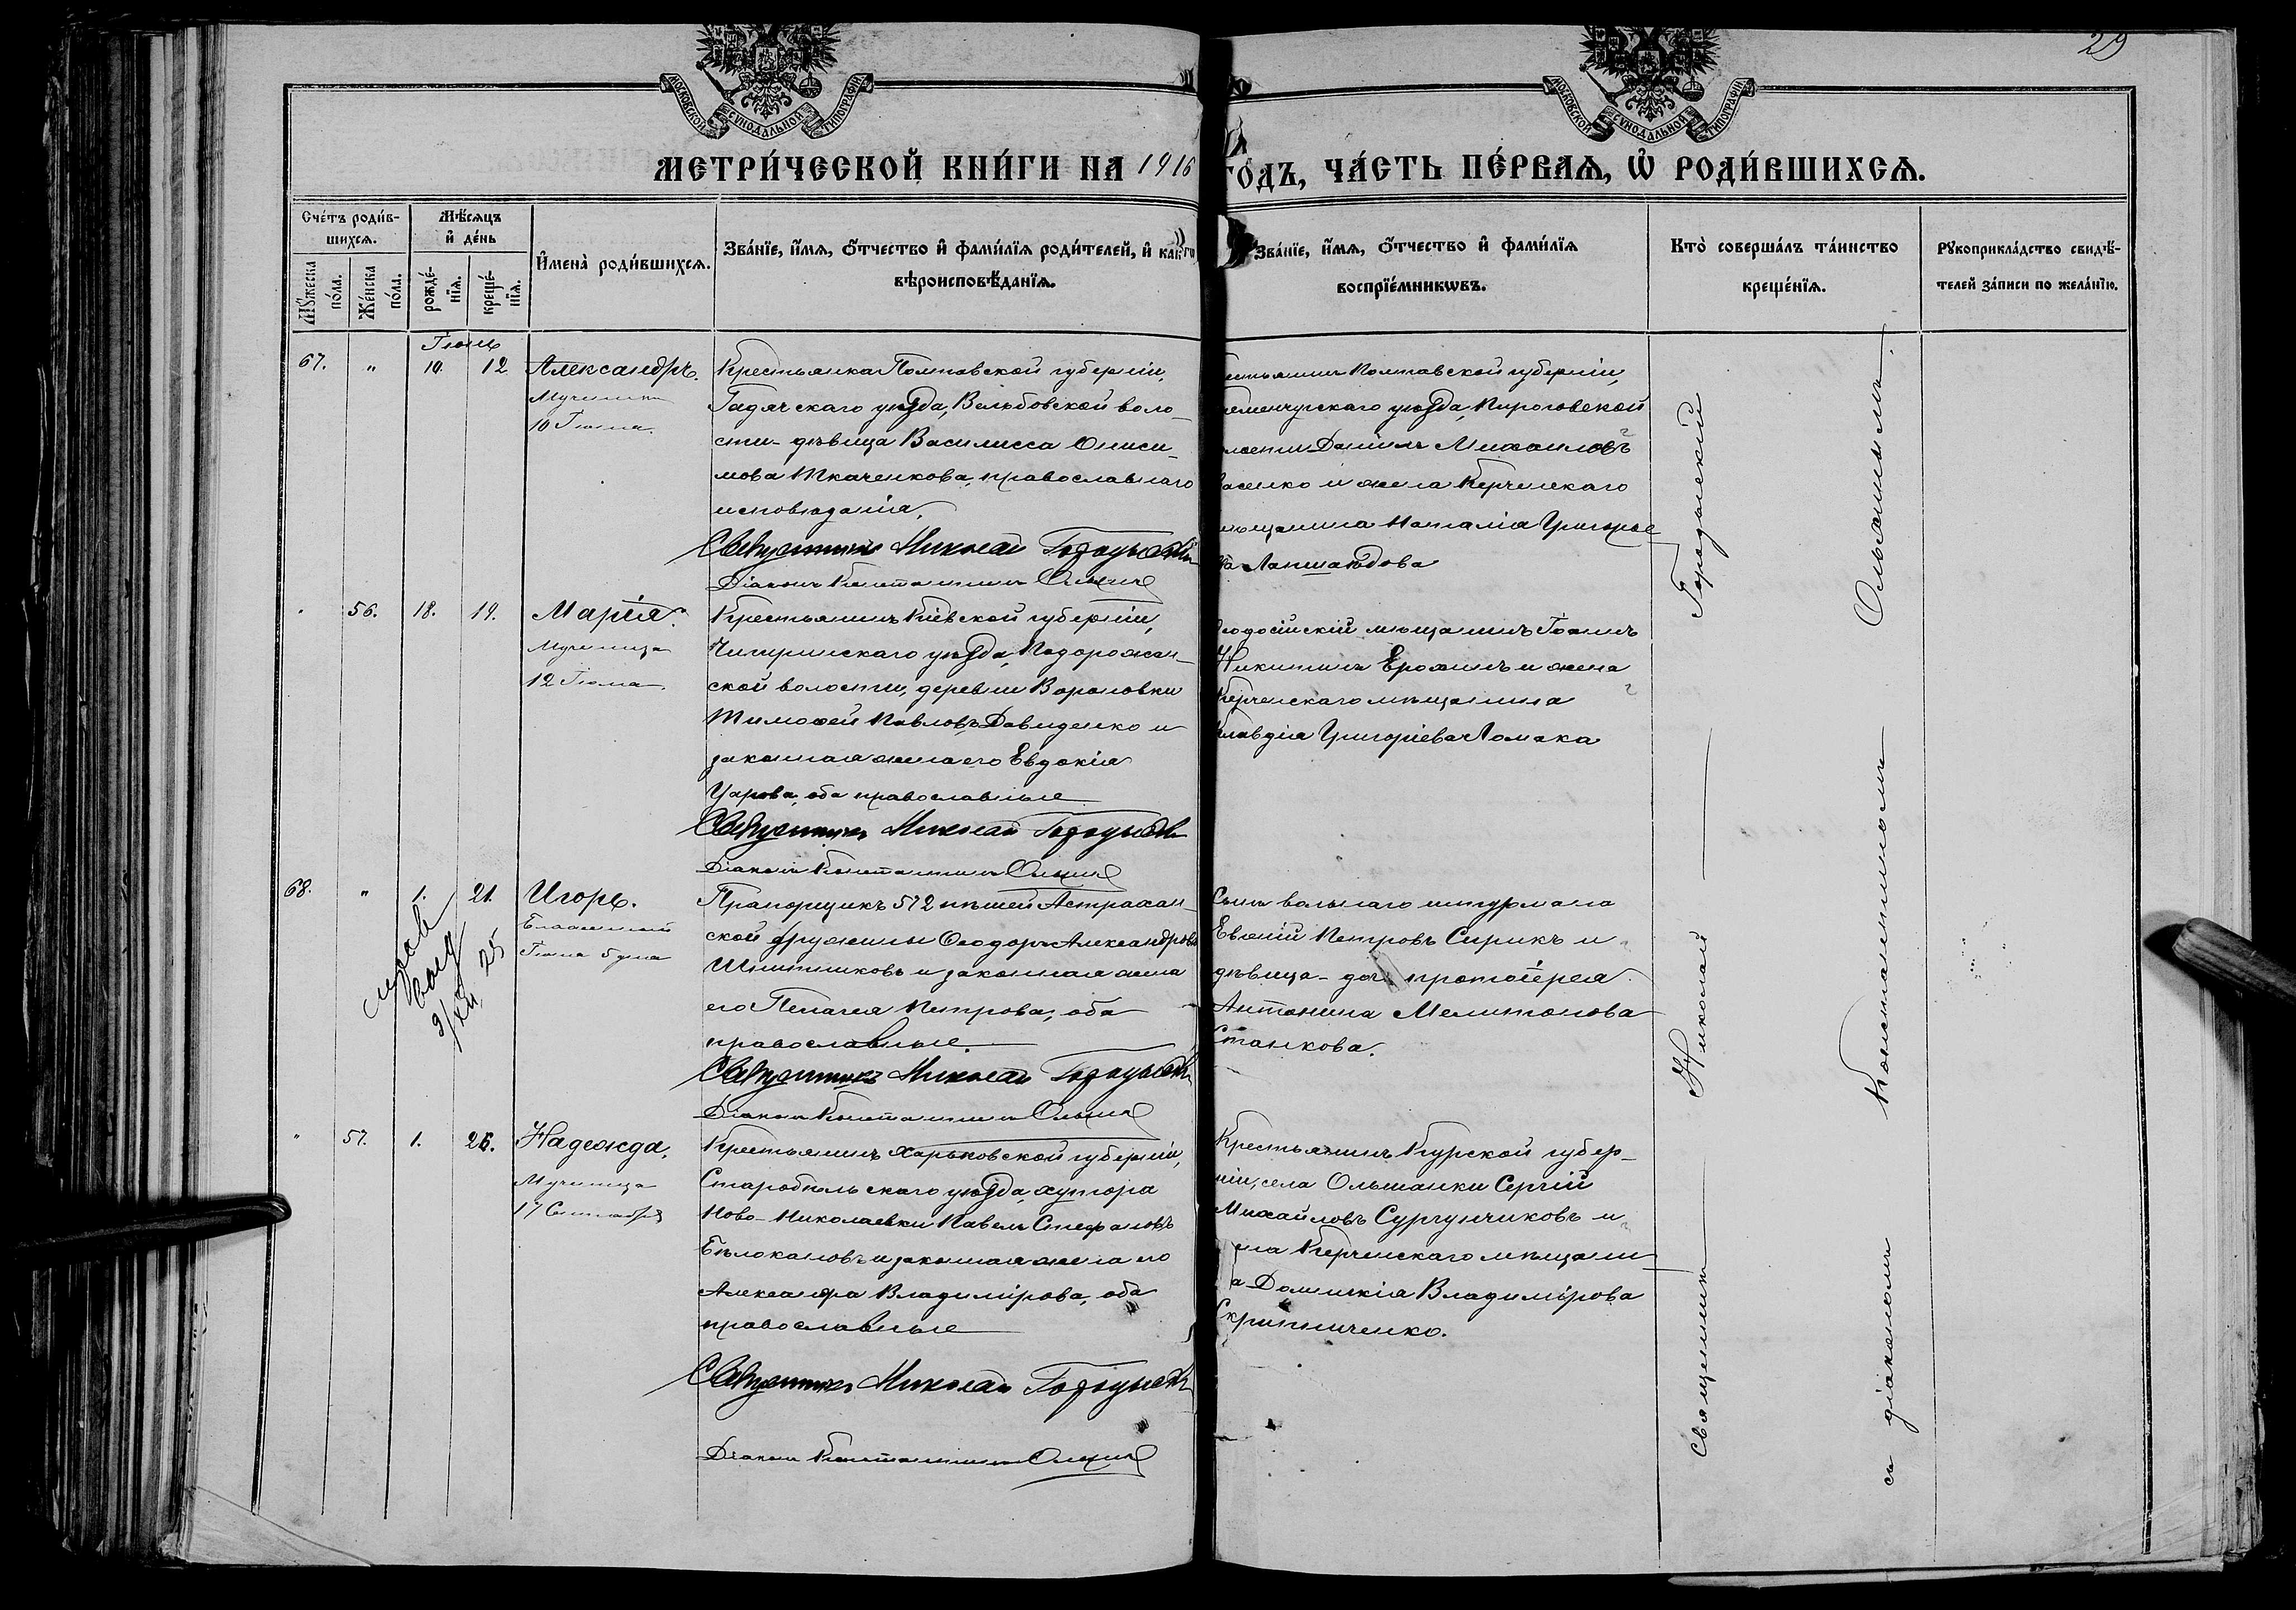 29
МОСКОВСКОЙ СѴНОДАЛЬНОЙ ТИПОГРАФІИ
МОСКОВСКОЙ СѴНОДАЛЬНОЙ ТИПОГРАФІИ
МЕТРИ́ЧЕСКОЙ КНИ́ГИ НА 1916
ГО́ДЪ, ЧА́СТЬ ПЕ́РВАѦ, Ѡ҆ РОДИ́ВШИХСѦ.
Сче́тъ роди́в-
шихсѧ.
Мꙋ́жеска
по́ла.
Же́нска
по́ла.
Мѣ́сѧцъ
и҆ де́нь
рожде́-
нїѧ.
креще́-
нїѧ.
И҆мена̀ роди́вшихсѧ.
Зва́нїе, и҆́мѧ, ѻ҆́тчество и҆ фами́лїѧ роди́телей, и҆ како́гѡ
вѣроисповѣ́данїѧ.
Зва́нїе, и҆́мѧ, ѻ҆́тчество и҆ фами́лїѧ
воспрїе́мникѡвъ.
Кто̀ соверша́лъ та́инство
креще́нїѧ.
Рꙋкоприкла́дство свидѣ́-
телей за́писи по жела́нїю.
Іюнь
67. " 10. 12 Александръ.
Мученикъ
10 Іюня.
Крестьянка Полтавской губерніи,
Гадячскаго уѣзда, Вельбовской воло-
сти - дѣвица Василисса Ониси-
мова Ткаченкова, православнаго
исповѣданія.
Священникъ Николай Городынскій
Діаконъ Константинъ
естьянинъ Полтавской губерніи,
еменчугскаго уѣзда, Пироговской
лости Даніилъ Михаиловъ
асенко и жена Керченскаго
мѣщанина Наталія Григорье
ва
" 56. 18. 19. Марія.
Мученица
12 Іюля
Крестьянинъ Кіевской губерніи,
Чигиринскаго уѣзда, Подорожан-
ской волости, деревни Вороновки
Тимофей Павловъ Давиденко и
законная жена его Евдокія
Уарова, оба православные
Священникъ Николай Городынскій
Діаконъ Константинъ
Ѳеодосійскій мѣщанинъ Іоаннъ
Никитинъ Ерохинъ и жена
Керченскаго мѣщанина
Клавдія Григоріева Ломака
68. " 1. 21. Игорь.
Благовѣрный
Іюня 5 дня
2/XII 25
Прапорщикъ 572 пѣшей Астрахан-
ской дружины Ѳеодоръ Александровъ
и законная жена
его Пелагея Петрова, оба
православные.
Священникъ Николай Городынскій
Діаконъ Константинъ
Сынъ вольнаго штурмана
Евгеній Петровъ Сирикъ и
дѣвица - дочь протоіерея
Антонина Мелитонова
Станкова.
" 57. 1. 26. Надежда.
Мученица
17 Сентября
Крестьянинъ Харьковской губерніи,
Старобѣльскаго уѣзда, хутора
Ново-Николаевки Павелъ Стефановъ
Бѣлоконовъ и законная жена его
Александра Владимірова, оба
православные
Священникъ Николай Городынскій
Діаконъ Константинъ
Крестьянинъ Курской губер-
ніи, села Ольшанки Сергій
Михайловъ Сургучиковъ и
ена Керченскаго мѣщани-
а Домникія Владимірова
Скрипниченко.
Священникъ Николай Городынскій
съ діакономъ Константиномъ